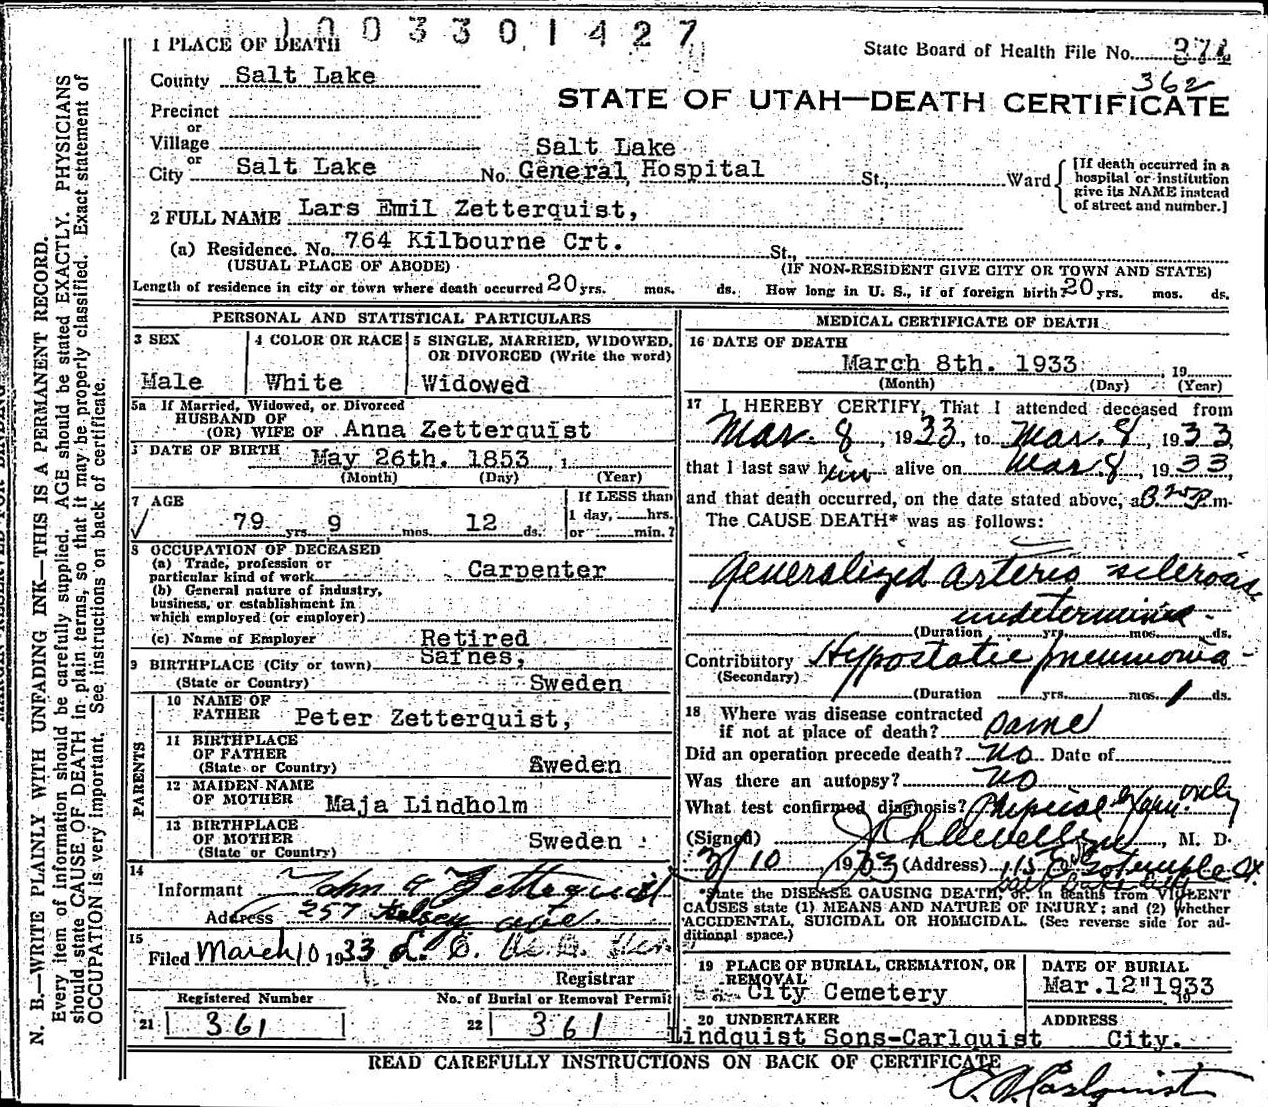 1003301427
1 PLACE OF DEATH
State Board of Health File No. 371
362
County Salt Lake
STATE OF UTAH—DEATH CERTIFICATE
Precinct
or
Village
or
City Salt Lake No. Salt Lake General Hospital St., Ward
[If death occurred in a hospital or institution give its NAME instead of street and number.]
2 FULL NAME Lars Emil Zetterquist,
(a) Residence. No. 764 Kilbourne Crt. St.,
(USUAL PLACE OF ABODE) (IF NON-RESIDENT GIVE CITY OR TOWN AND STATE)
Length of residence in city or town where death occurred 20 yrs. mos. ds. How long in U. S., if of foreign birth? 20 yrs. mos. ds.
PERSONAL AND STATISTICAL PARTICULARS
3 SEX
Male
4 COLOR OR RACE
White
5 SINGLE, MARRIED, WIDOWED, OR DIVORCED (Write the word)
Widowed
5a If Married, Widowed, or Divorced
HUSBAND OF
(OR) WIFE OF Anna Zetterquist
DATE OF BIRTH May 26th. 1853, 1
(Month) (Day) (Year)
7 AGE
79 yrs. 9 mos. 12 ds.
If LESS than
1 day, hrs.
or min.?
8 OCCUPATION OF DECEASED
(a) Trade, profession or
particular kind of work Carpenter
(b) General nature of industry,
business, or establishment in
which employed (or employer)
(c) Name of Employer Retired
9 BIRTHPLACE (City or town) Safnes,
(State or Country) Sweden
PARENTS
10 NAME OF
FATHER Peter Zetterquist,
11 BIRTHPLACE
OF FATHER
(State or Country) Sweden
12 MAIDEN NAME
OF MOTHER Maja Lindholm
13 BIRTHPLACE
OF MOTHER
(State or Country) Sweden
14
Informant John Zetterquist
Address 257 Kelsey ave.
15
Filed March 10 1933
Registrar
Registered Number
21 361
No. of Burial or Removal Permit
22 361
MEDICAL CERTIFICATE OF DEATH
16 DATE OF DEATH
March 8th. 1933, 19
(Month) (Day) (Year)
17 I HEREBY CERTIFY, That I attended deceased from
Mar. 8, 1933, to Mar. 8, 1933,
that I last saw him alive on Mar 8, 1933,
and that death occurred, on the date stated above, at m.
The CAUSE DEATH* was as follows:
Generalized arterio sclerosis
undetermined
(Duration yrs. mos. ds.
Contributory Hypostatic pneumonia
(Secondary)
(Duration yrs. mos. 1 ds.
18 Where was disease contracted
if not at place of death? Same
Did an operation precede death? No Date of
Was there an autopsy? No
What test confirmed diagnosis? Physical Exam. only
(Signed) , M. D.
3/10, 1933 (Address)
*State the DISEASE CAUSING DEATH, or, in deaths from VIOLENT
CAUSES state (1) MEANS AND NATURE OF INJURY; and (2) whether
ACCIDENTAL, SUICIDAL OR HOMICIDAL. (See reverse side for additional space.)
19 PLACE OF BURIAL, CREMATION, OR REMOVAL
City Cemetery
DATE OF BURIAL
Mar. 12" 1933
19
20 UNDERTAKER
Lindquist Sons-Carlquist
ADDRESS
City.
READ CAREFULLY INSTRUCTIONS ON BACK OF CERTIFICATE
N. B.—WRITE PLAINLY WITH UNFADING INK—THIS IS A PERMANENT RECORD.
Every item of information should be carefully supplied. AGE should be stated EXACTLY. PHYSICIANS
should state CAUSE OF DEATH in plain terms, so that it may be properly classified. Exact statement of
OCCUPATION is very important. See instructions on back of certificate.